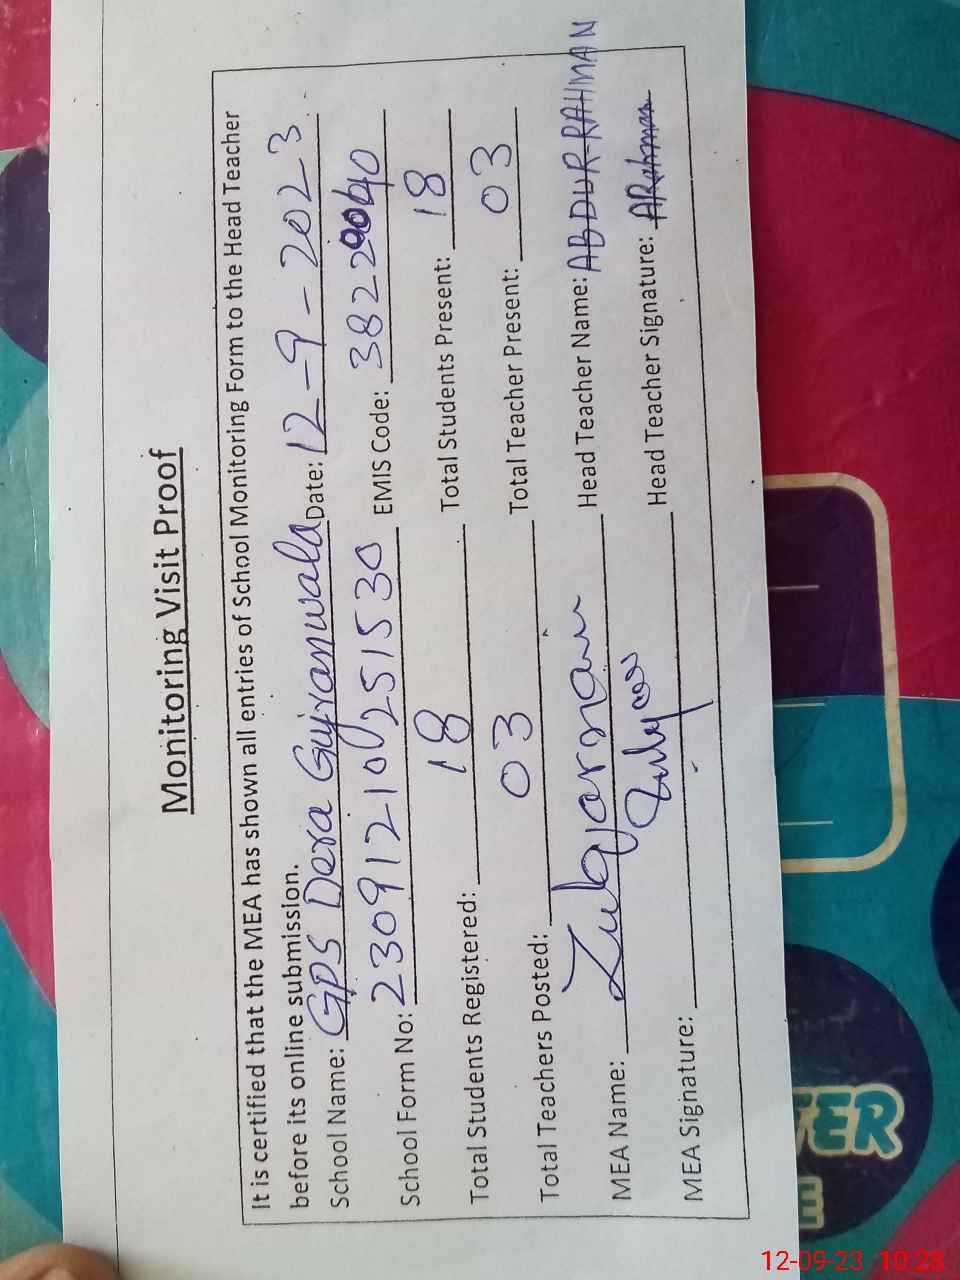 Monitoring Visit Proof
It is certified that the MEA has shown all entries of School Monitoring Form to the Head Teacher
before its online submission.
School Name: GPS Dera Gujranwala Date: 12-9-2023
School Form No: 230912100251530 EMIS Code: 38220040
Total Students Registered: 18 Total Students Present: 18
Total Teachers Posted: 03 Total Teacher Present: 03
MEA Name: Zulqarnain Head Teacher Name: ABDUR-RAHMAN
MEA Signature: Head Teacher Signature: ARahman
TER
E
12-09-23 10:28